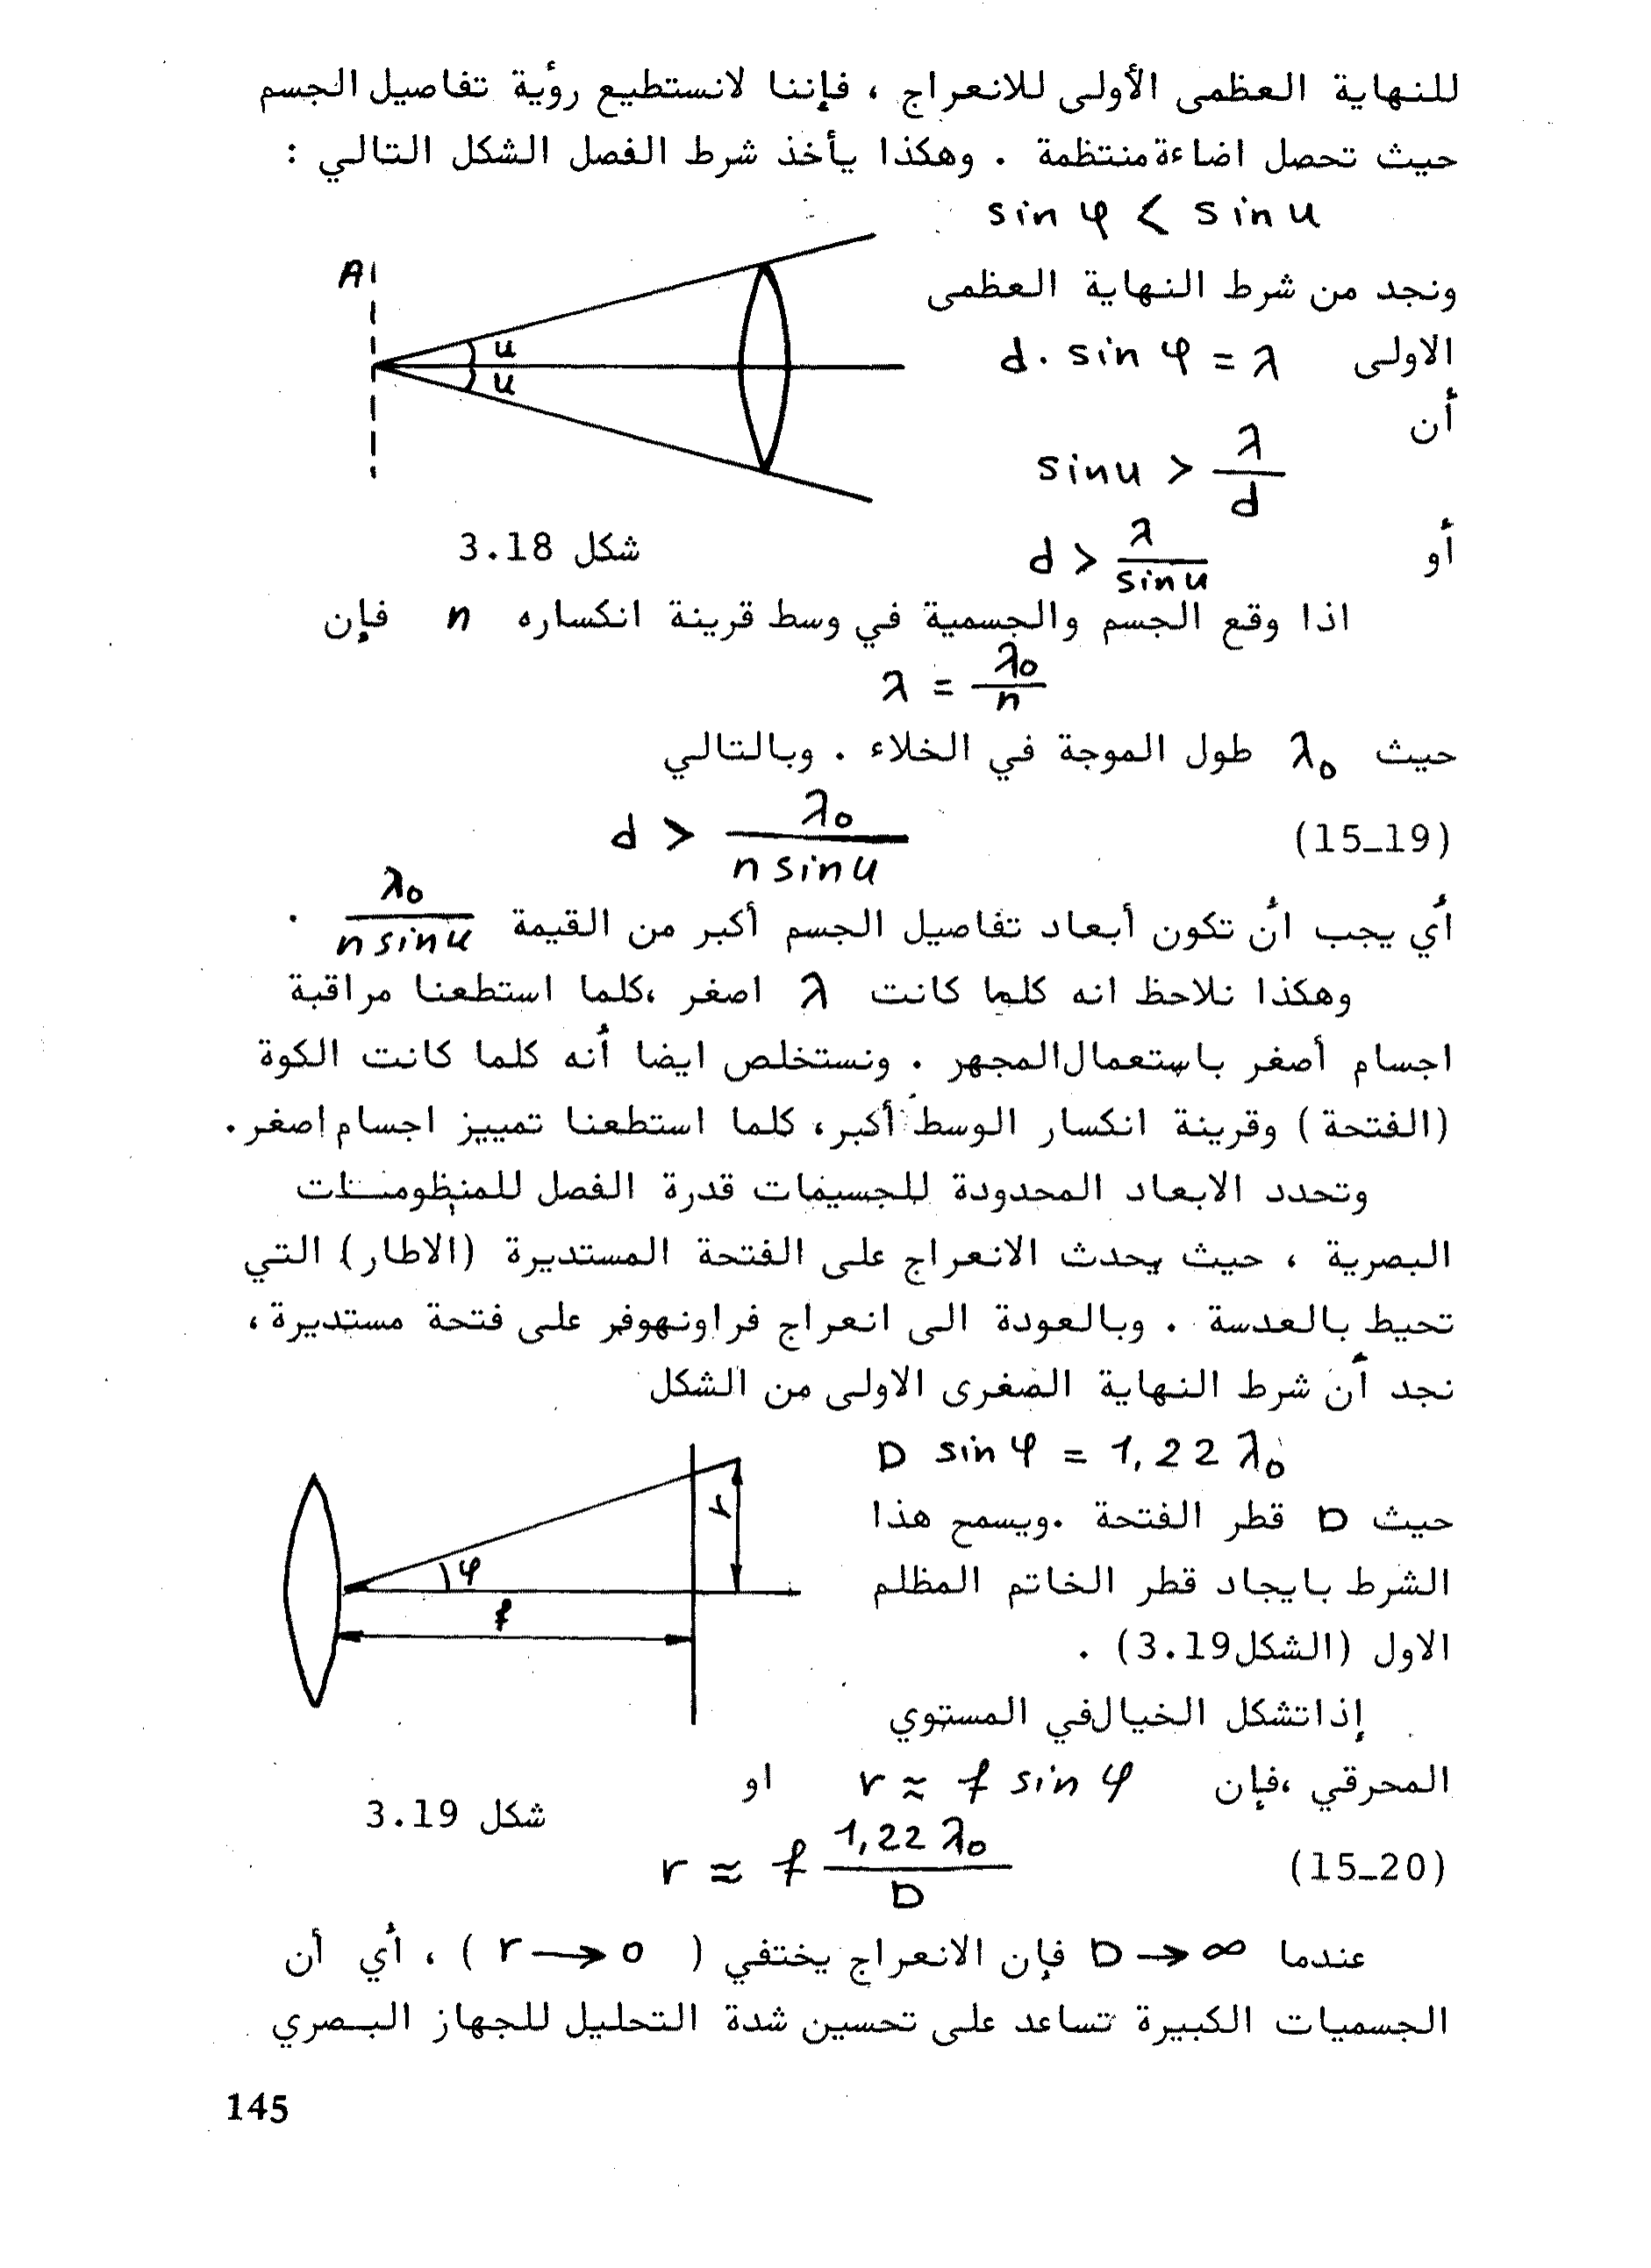 للنهاية العظمى الأولى للانعراج ، فإننا لانستطيع رؤية تفاصيل الجسم
حيث تحصل اضاءة منتظمة . وهكذا يأخذ شرط الفصل الشكل التالي :
sin φ < sin u
A
u
u
ونجد من شرط النهاية العظمى
الاولى d. sin φ = λ
أن
sin u > λ/d
شكل 3.18
أو d > λ/sin u
اذا وقع الجسم والجسمية في وسط قرينة انكساره n فإن
λ = λ₀/n
حيث λ₀ طول الموجة في الخلاء . وبالتالي
(15_19) d > λ₀/n sin u
أي يجب أن تكون أبعاد تفاصيل الجسم أكبر من القيمة λ₀/n sin u .
وهكذا نلاحظ انه كلما كانت λ اصغر ،كلما استطعنا مراقبة
اجسام أصغر باستعمال المجهر . ونستخلص ايضا أنه كلما كانت الكوة
(الفتحة) وقرينة انكسار الوسط أكبر، كلما استطعنا تمييز اجسام اصغر.
وتحدد الابعاد المحدودة للجسيمات قدرة الفصل للمنظومات
البصرية ، حيث يحدث الانعراج على الفتحة المستديرة (الاطار) التي
تحيط بالعدسة . وبالعودة الى انعراج فراونهوفر على فتحة مستديرة ،
نجد أن شرط النهاية الصغرى الاولى من الشكل
D sin φ = 1,22 λ₀
حيث D قطر الفتحة .ويسمح هذا
الشرط بايجاد قطر الخاتم المظلم
الاول (الشكل3.19) .
r
φ
f
إذا تشكل الخيال في المستوي
المحرقي ،فإن r ≈ f sin φ او
شكل 3.19
(15_20) r ≈ f 1,22 λ₀/D
عندما D → ∞ فإن الانعراج يختفي ( r → 0 ) ، أي أن
الجسميات الكبيرة تساعد على تحسين شدة التحليل للجهاز البصري
145